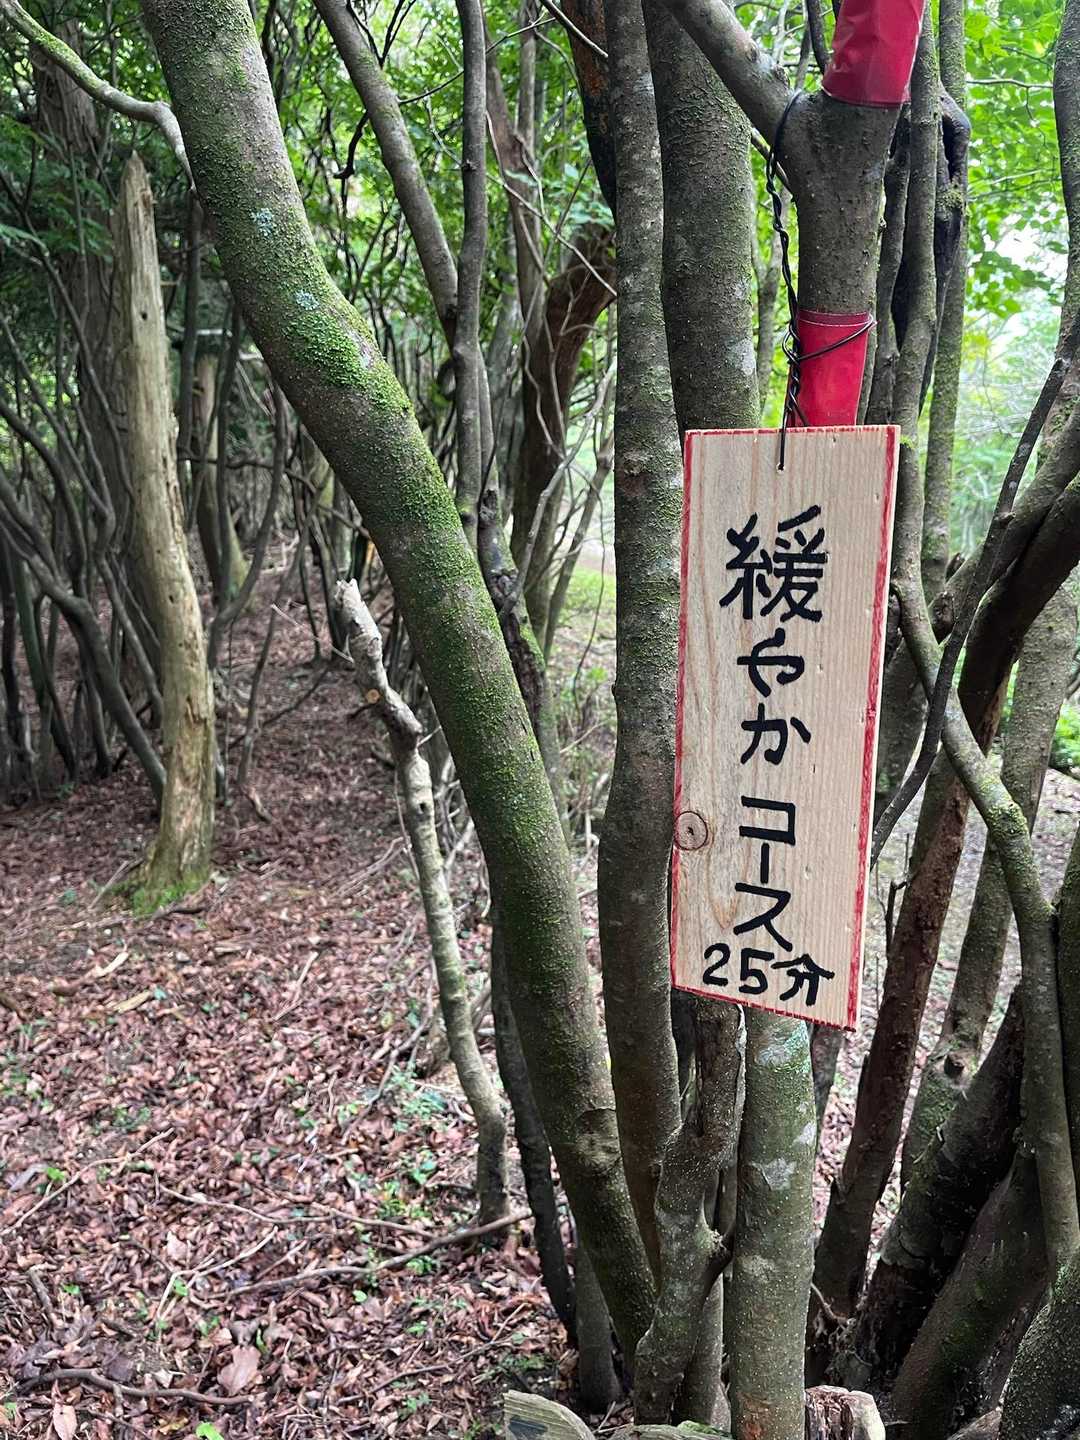 緩やかコース
25分